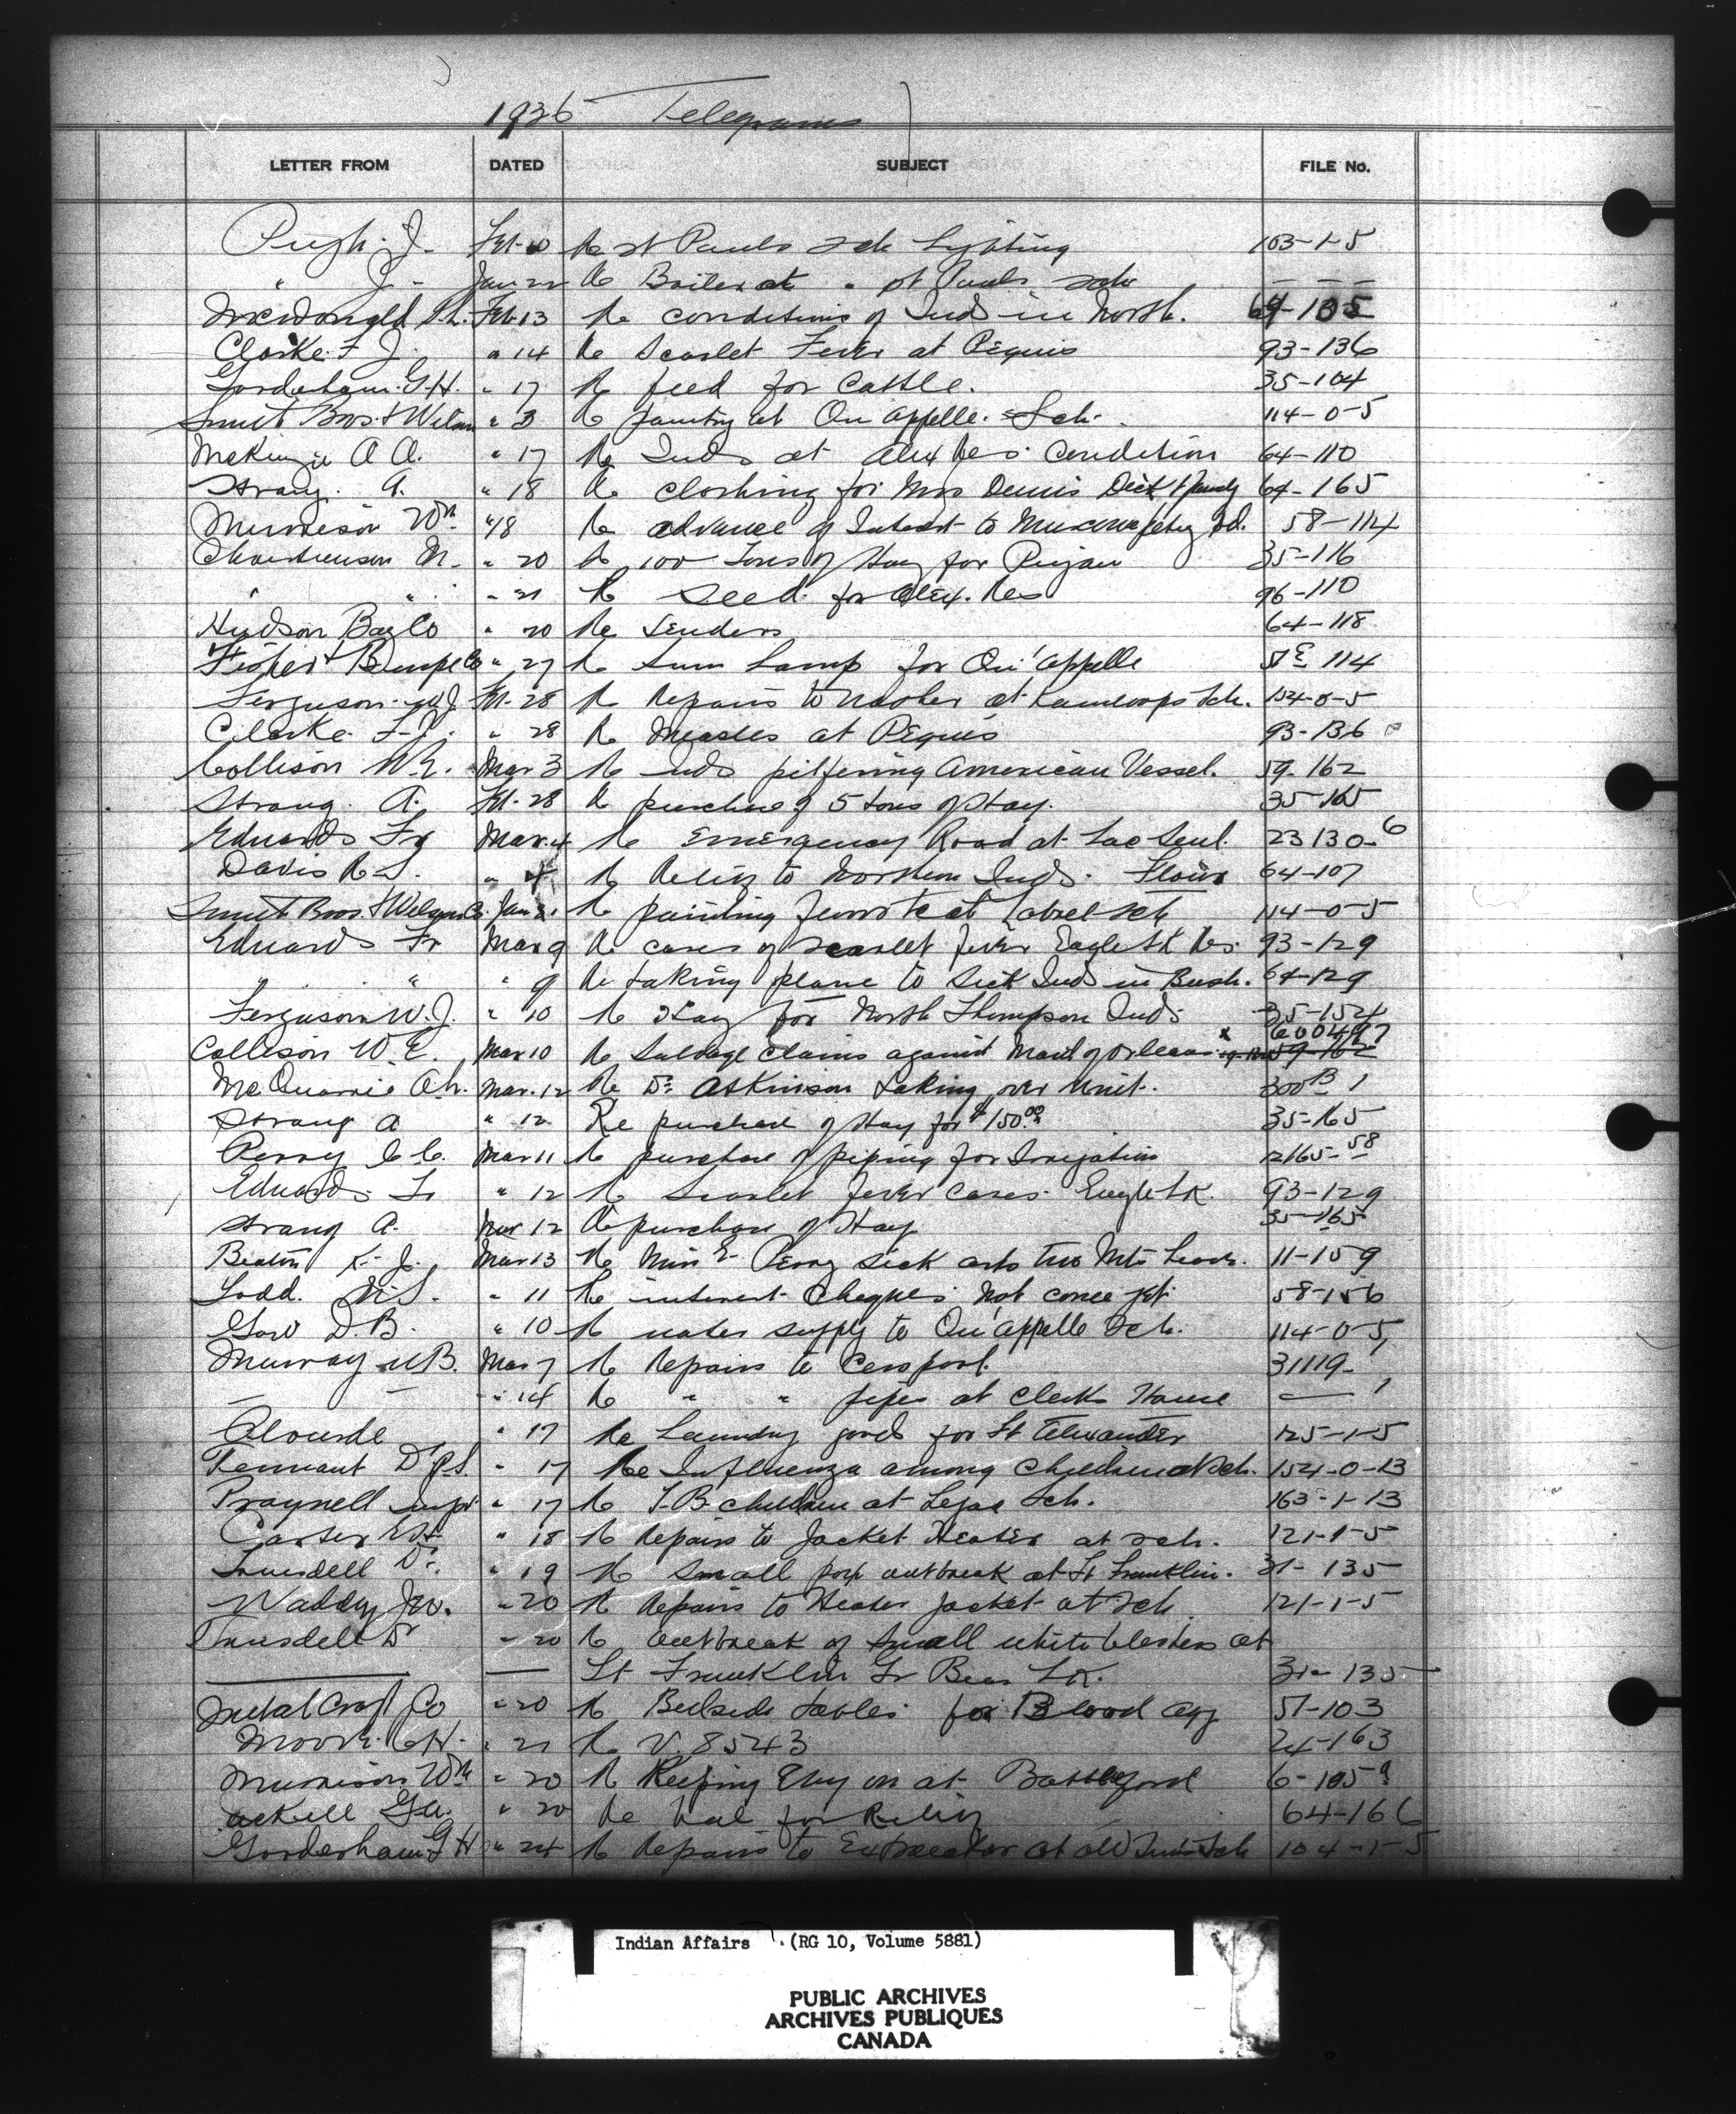 1936 Telegrams
LETTER FROM DATED SUBJECT FILE No.
Pugh. J. Feb. 10 Re St Pauls Sch Lighting 103-1-5
" J - Jan 22 Re Boiler at " St Pauls Sch — — —
McDonald Feb. 13 Re conditions of Inds in North. 64-105
Clarke. F J. " 14 Re Scarlet Fever at Peguis 93-136
Gooderham. G.H. " 17 Re feed for Cattle. 35-104
Smith Bros. & Wilson " 3 Re at Qu Appelle. Sch. 114-0-5
McKenzie A A. " 17 Re Inds at Alex Res. Condition 64-110
Strang. A. " 18 Re clothing for Mrs Dennis Dick & family 64-165
Murison Wm " 18 Re advance of Interest to Bd. 58-114
Christianson M. " 20 Re 100 Tons of Hay for Piegan 35-116
" " " 21 Re Seed. for Alex. Res 96-110
Hudson Bay Co " 20 Re Tenders 64-118
Fisher & Burpe Co " 27 Re Sun Lamp for Qu'Appelle 51E 114
Ferguson. W J. Feb. 28 Re Repairs to Washer at Kamloops Sch. 154-0-5
Clarke F-J. " 28 Re Measles at Peguis 93-136
Collison W.E. Mar 3 Re Inds pilfering American Vessel. 59-162
Strang. A. Feb. 28 Re purchase of 5 tons of Hay. 35-165
Edwards Fr Mar. 4 Re Emergency Road at Lac Seul. 23130-6
Davis R.S. " 4 Re Relief to Northern Inds. Flour 64-107
Smith Bros. & Wilson Co. Jan 31 Re painting at Sch 114-0-5
Edwards Fr Mar 9 Re cases of scarlet fever Eagle Lk Res. 93-129
" " " 9 Re taking plane to Sick Inds in Bush. 64-129
Ferguson W.J. " 10 Re Hay for North Thompson Inds 35-154
Collison W.E. Mar 10 Re Salvage Claims against Maid of Orleans x 600497
59-162
McQuarrie A.h. Mar. 12 Re Dr Atkinson Taking over Unit. 300B 1
Strang A " 12 Re purchase of Hay for $150.00 35-165
Perry C C. Mar 11 Re purchase of piping for Irrigation 12165-58
Edwards Fr " 12 Re Scarlet fever Cases. Eagle LK. 93-129
Strang A. Mar 12 Re purchase of Hay 35-165
Beaton K. J. Mar 13 Re Miss E- Perry Sick asks two Mts Leave. 11-159
Todd. M.S. " 11 Re interest Cheques Not come yet. 58-156
Gow D.B. " 10 Re water supply to Qu'Appelle Sch. 114-0-5
Murray W.B. Mar 7 Re Repairs to Cesspool. 31119-1
— — " 14 Re " " pipes at Clerks House —
Alourde " 17 Re Laundry goods for Ft Alexander 125-1-5
Tennant Dr J.S. " 17 Re Influenza among Children at Sch. 154-0-13
Praynell " 17 Re T.B. children at Lejac Sch. 163-1-13
Carter " 18 Re Repairs to Jacket Heater at Sch. 121-1-5
Truesdell Dr. " 19 Re Small pox outbreak at Ft Franklin. 31-135
Waddy Jno. " 20 Re Repairs to Heater Jacket at Sch 121-1-5
Truesdell Dr " 20 Re outbreak of small white blisters at
— — Ft Franklin Gr Bear LK. 31-135
Metal Craft Co " 20 Re Bedside tables for Blood Agy 51-103
Moore. C H. " 21 Re V. 8543 24-163
Murison Wm " 20 Re Keeping on at Battleford 6-105
Ackell Ga. " 20 Re for Relief 64-166
Gooderham G H " 24 Re Repairs to Extractor at Old Suns Sch 104-1-5
Indian Affairs . (RG 10, Volume 5881)
PUBLIC ARCHIVES
ARCHIVES PUBLIQUES
CANADA